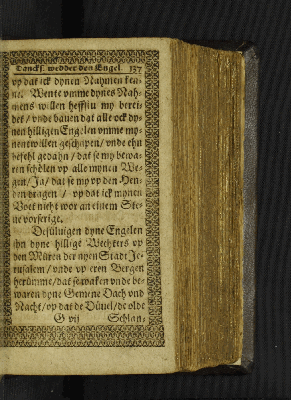 Danckſ. wedder den Engel. 137
vp dat ick dynen Nahmen ken-
ne. Wente vmme dynes Nah-
mens willen heffſtu my berei-
det / vnde bauen dat alle ock dy-
nen hilligen Engelen vmme my-
nent willen geſchapen / vnde ehn
befehl gedahn / dat ſe my bewa-
ren ſchölen vp alle mynen We-
gen / Ja / dat ſe my vp den Hen-
den dragen / vp dat ick mynen
Voet nicht wor an einem Ste-
ne vorſerige.
Deſüluigen dyne Engelen
ſyn dyne hillige Wechters vp
den Müren der nyen Stadt Je-
ruſalem / vnde vp eren Bergen
herümme / dat ſe waken vnde be-
waren dyne Gemene Dach vnd
Nacht / vp dat de Düuel / de olde
G vij Schlan-